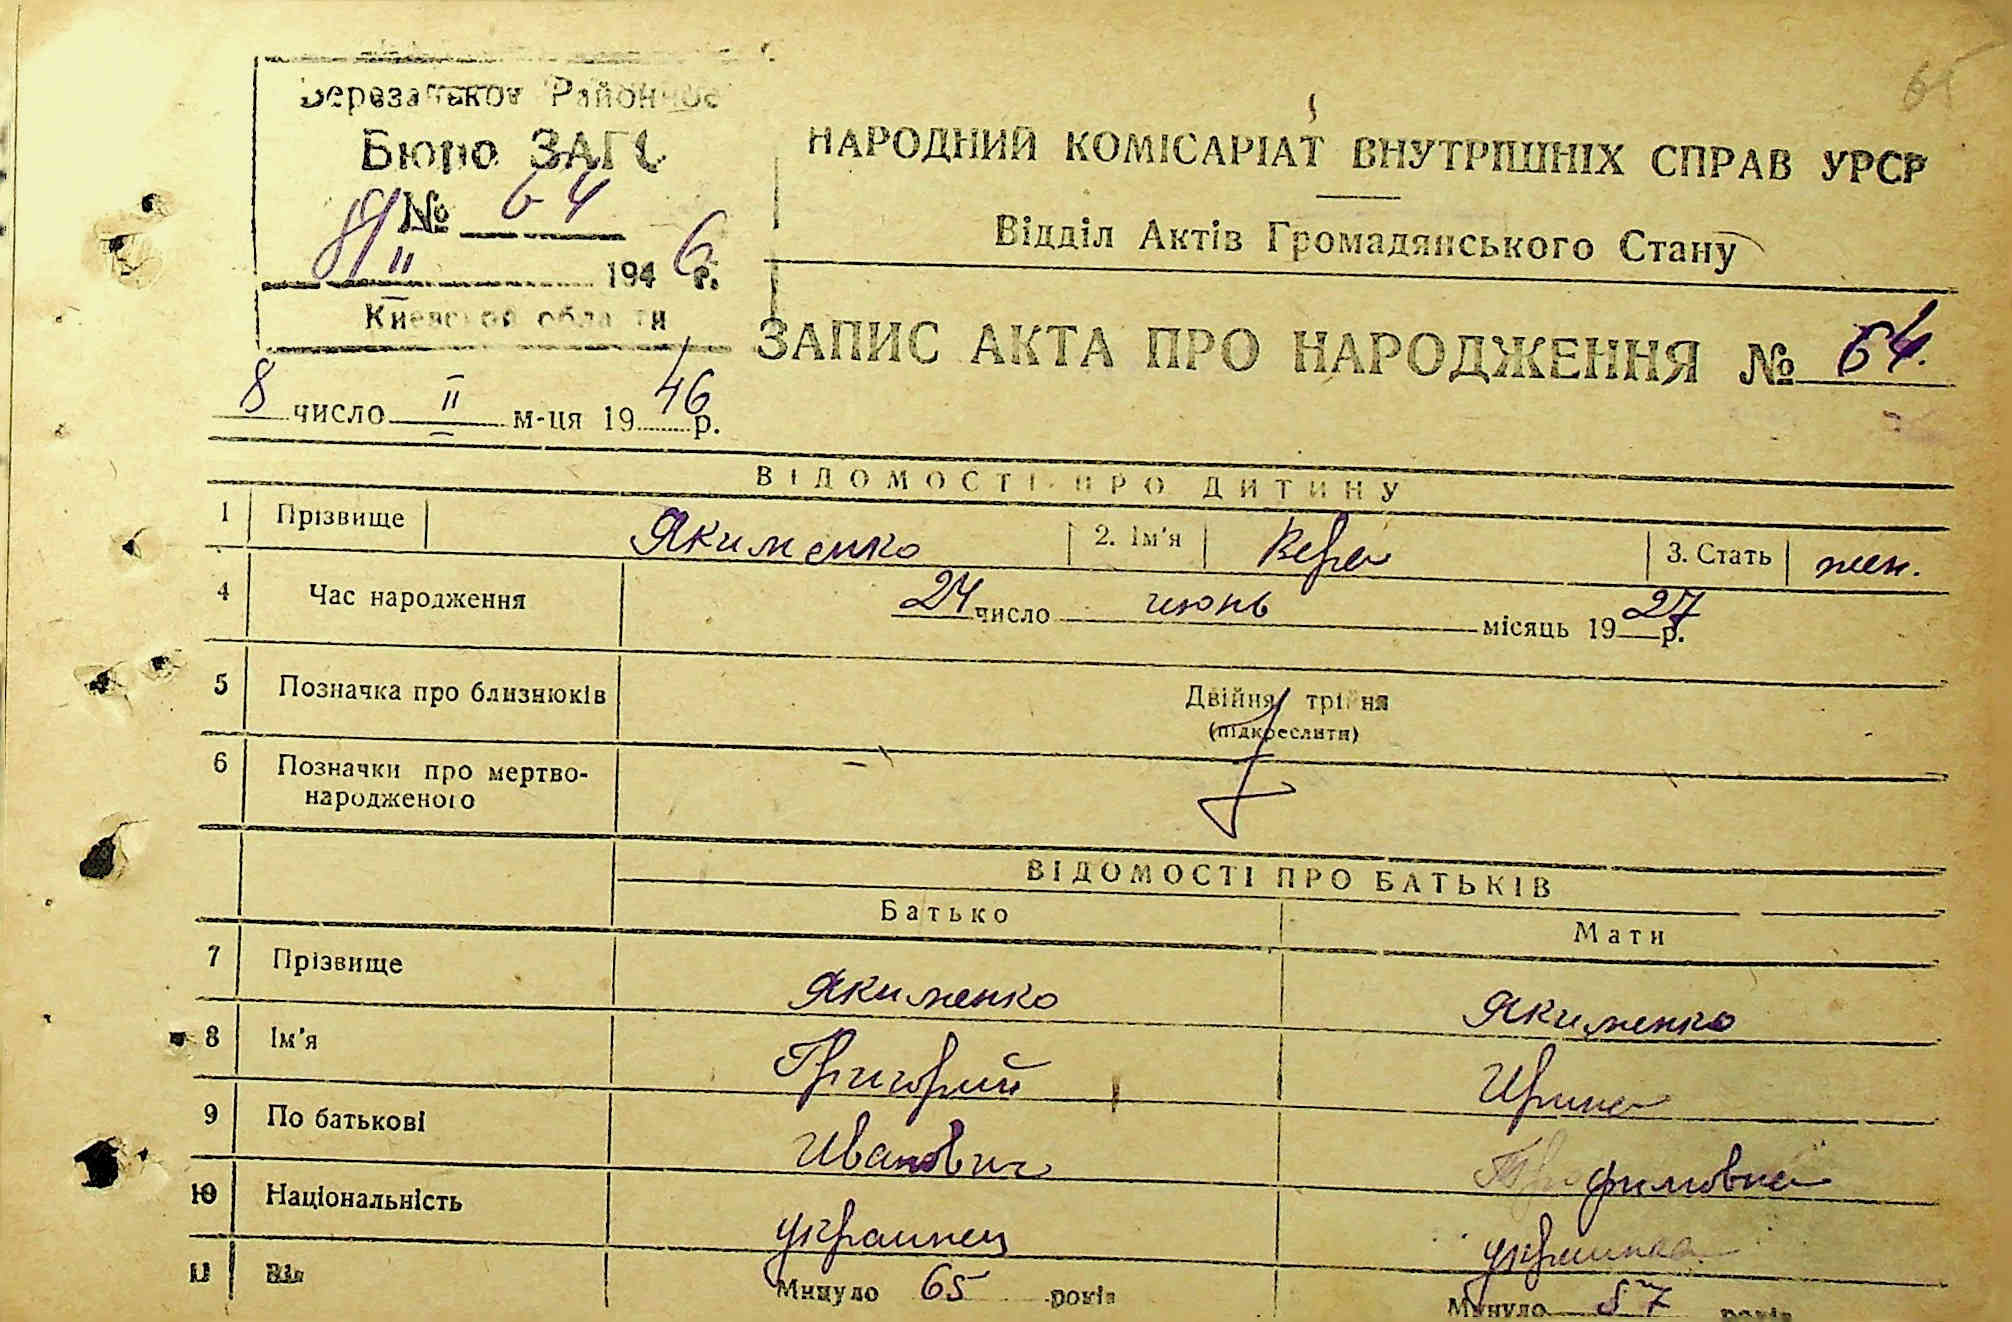 65
Березаньков Районное
Бюро ЗАГС
№ 64
8/II 1946 г.
Киевской области
НАРОДНИЙ КОМІСАРІАТ ВНУТРІШНІХ СПРАВ УРСР
Відділ Актів Громадянського Стану
ЗАПИС АКТА ПРО НАРОДЖЕННЯ № 64.
8 число II м-ця 1946 р.
ВІДОМОСТІ ПРО ДИТИНУ
1 Прізвище Якименко 2. Ім'я Вера 3. Стать жен.
4 Час народження 24 число июнь місяць 1927 р.
5 Позначка про близнюків Двійня, трійня
(підкреслити)
6 Позначки про мертво-
народженого
ВІДОМОСТІ ПРО БАТЬКІВ
Батько Мати
7 Прізвище Якименко Якименко
8 Ім'я Григорий Ирина
9 По батькові Иванович Трофимовна
10 Національність украинец украинка
11 Вік Минуло 65 років Минуло 57 років